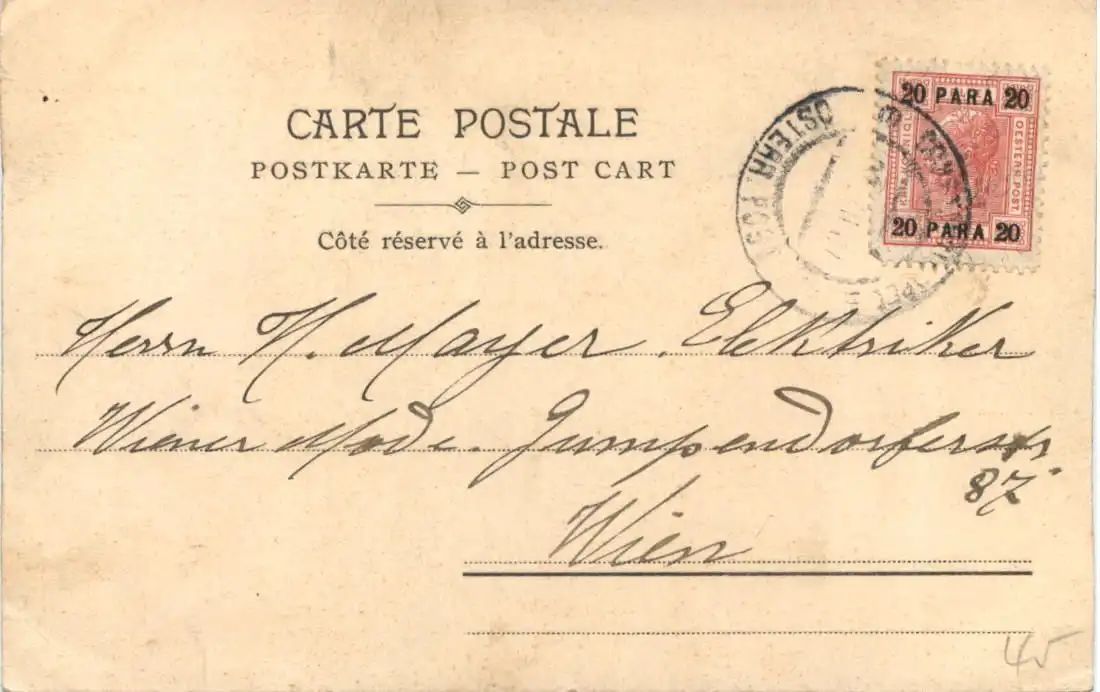 CARTE POSTALE
POSTKARTE — POST CART
Côté réservé à l'adresse.
20 PARA 20
OESTERR. POST
20 PARA 20
ÖSTERR. POST
Herrn H. Mayer. Elektriker
Wiener Mode. Gumpendorferstr
87
Wien
45